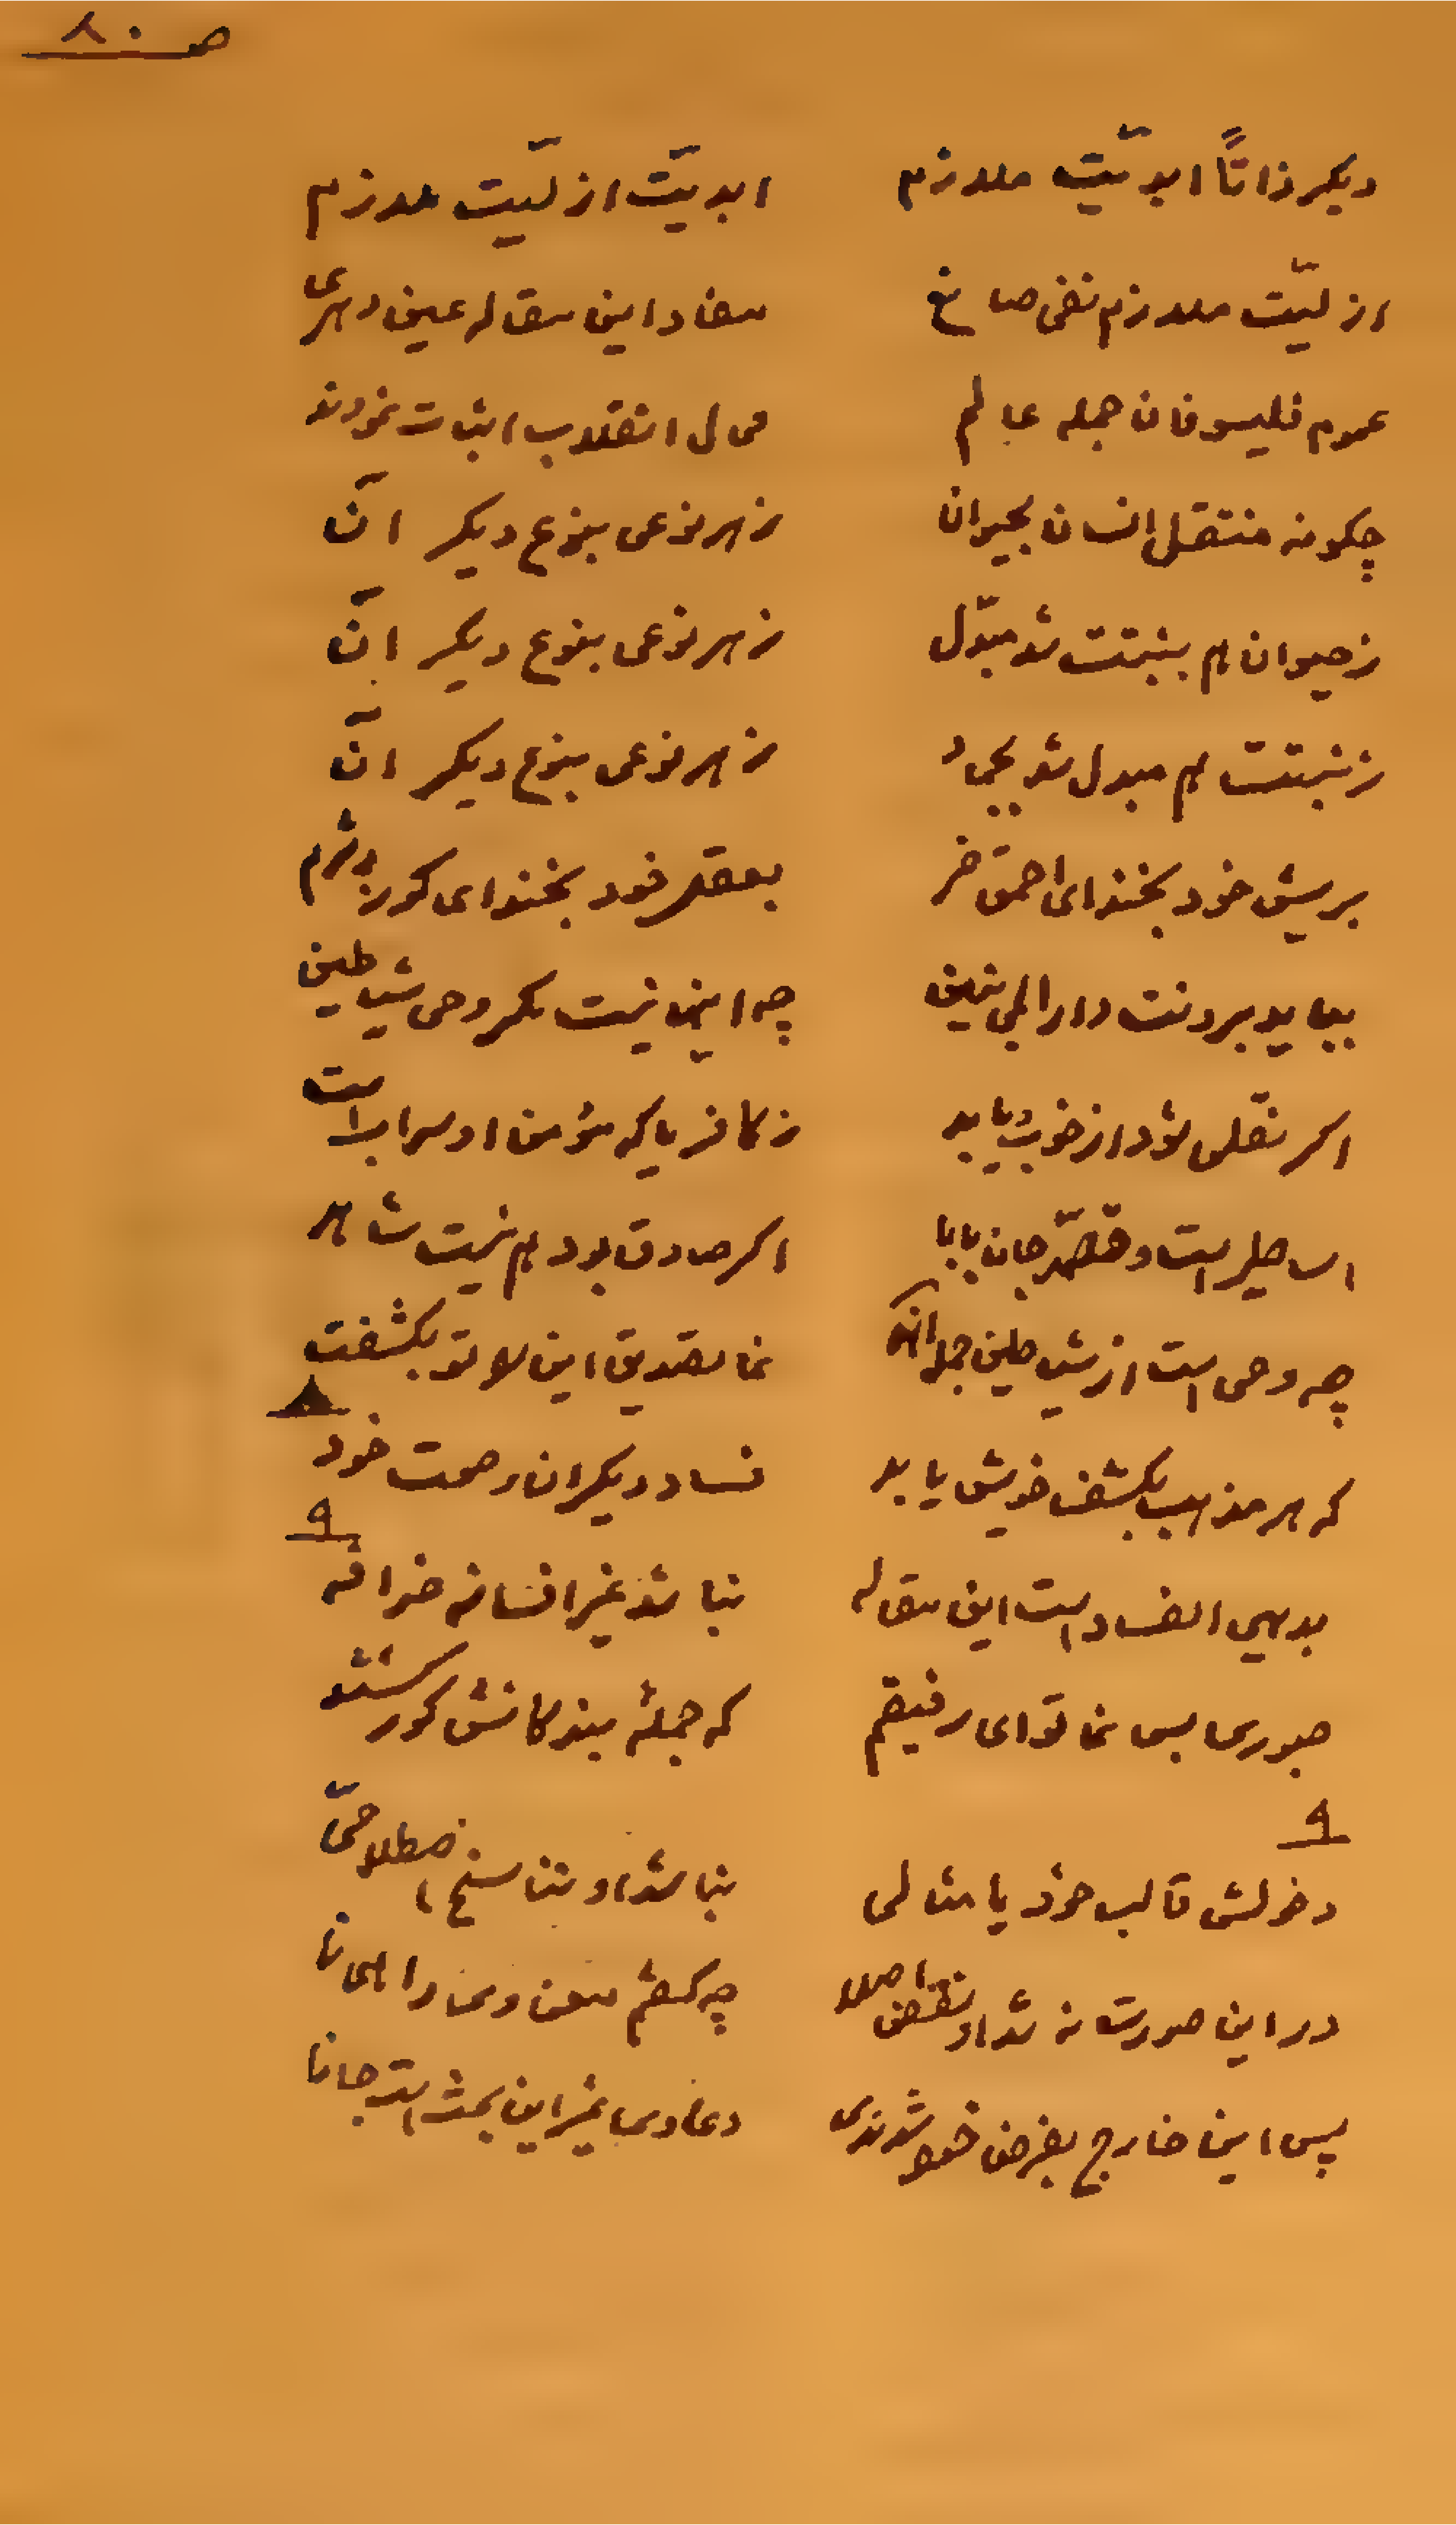 صـ ٨٠
دیکر ذاتاً ابدیّت ملازم ابدیّت ازلیّت ملازم
ازلیّت ملازم نفی صانع مفاد این مقاله عین دهری
عموم فلیسوفان جمله عالم محال انقلاب اثبات نمودند
چکونه منتقل انسان بحیوان زهر نوعی بنوع دیکر آن
زحیوان هم بنبتت شد مبدّل زهر نوعی بنوع دیکر آن
زنبتت هم مبدل شد بجماد زهر نوعی بنوع دیکر آن
بریش خود بخند ای احمق خر بعقل خود بخند ای کور
بباید بردنت دار المجانین چه این نیست مکر وحی شیاطین
اکر نقلی بود از خوب و یا بد زکافر یا که مؤمن او سراب است
اساطیر است و قصّه جان بابا اکر صادق بود هم نیست شاهد
چه وحی است از شیاطین نما تصدیق این بکشفت
٨
که هر مذهب بکشف خویش یابد فساد دیکران وصحت خود
٩
بدیهی الفساد است این مقاله نباشد غیر افسانه خرافه
صبوری بس نما تو ای رفیقم که جملهٔ بندکانش کور
٩
دخولش قالب خود یا مثالی نباشد او تناسخ اصطلاحیّ
در این صورت نه شد او نقض اصلا چه کفتم
پس این خارج بفرض خود دعاوی غیر این بحث است جانا